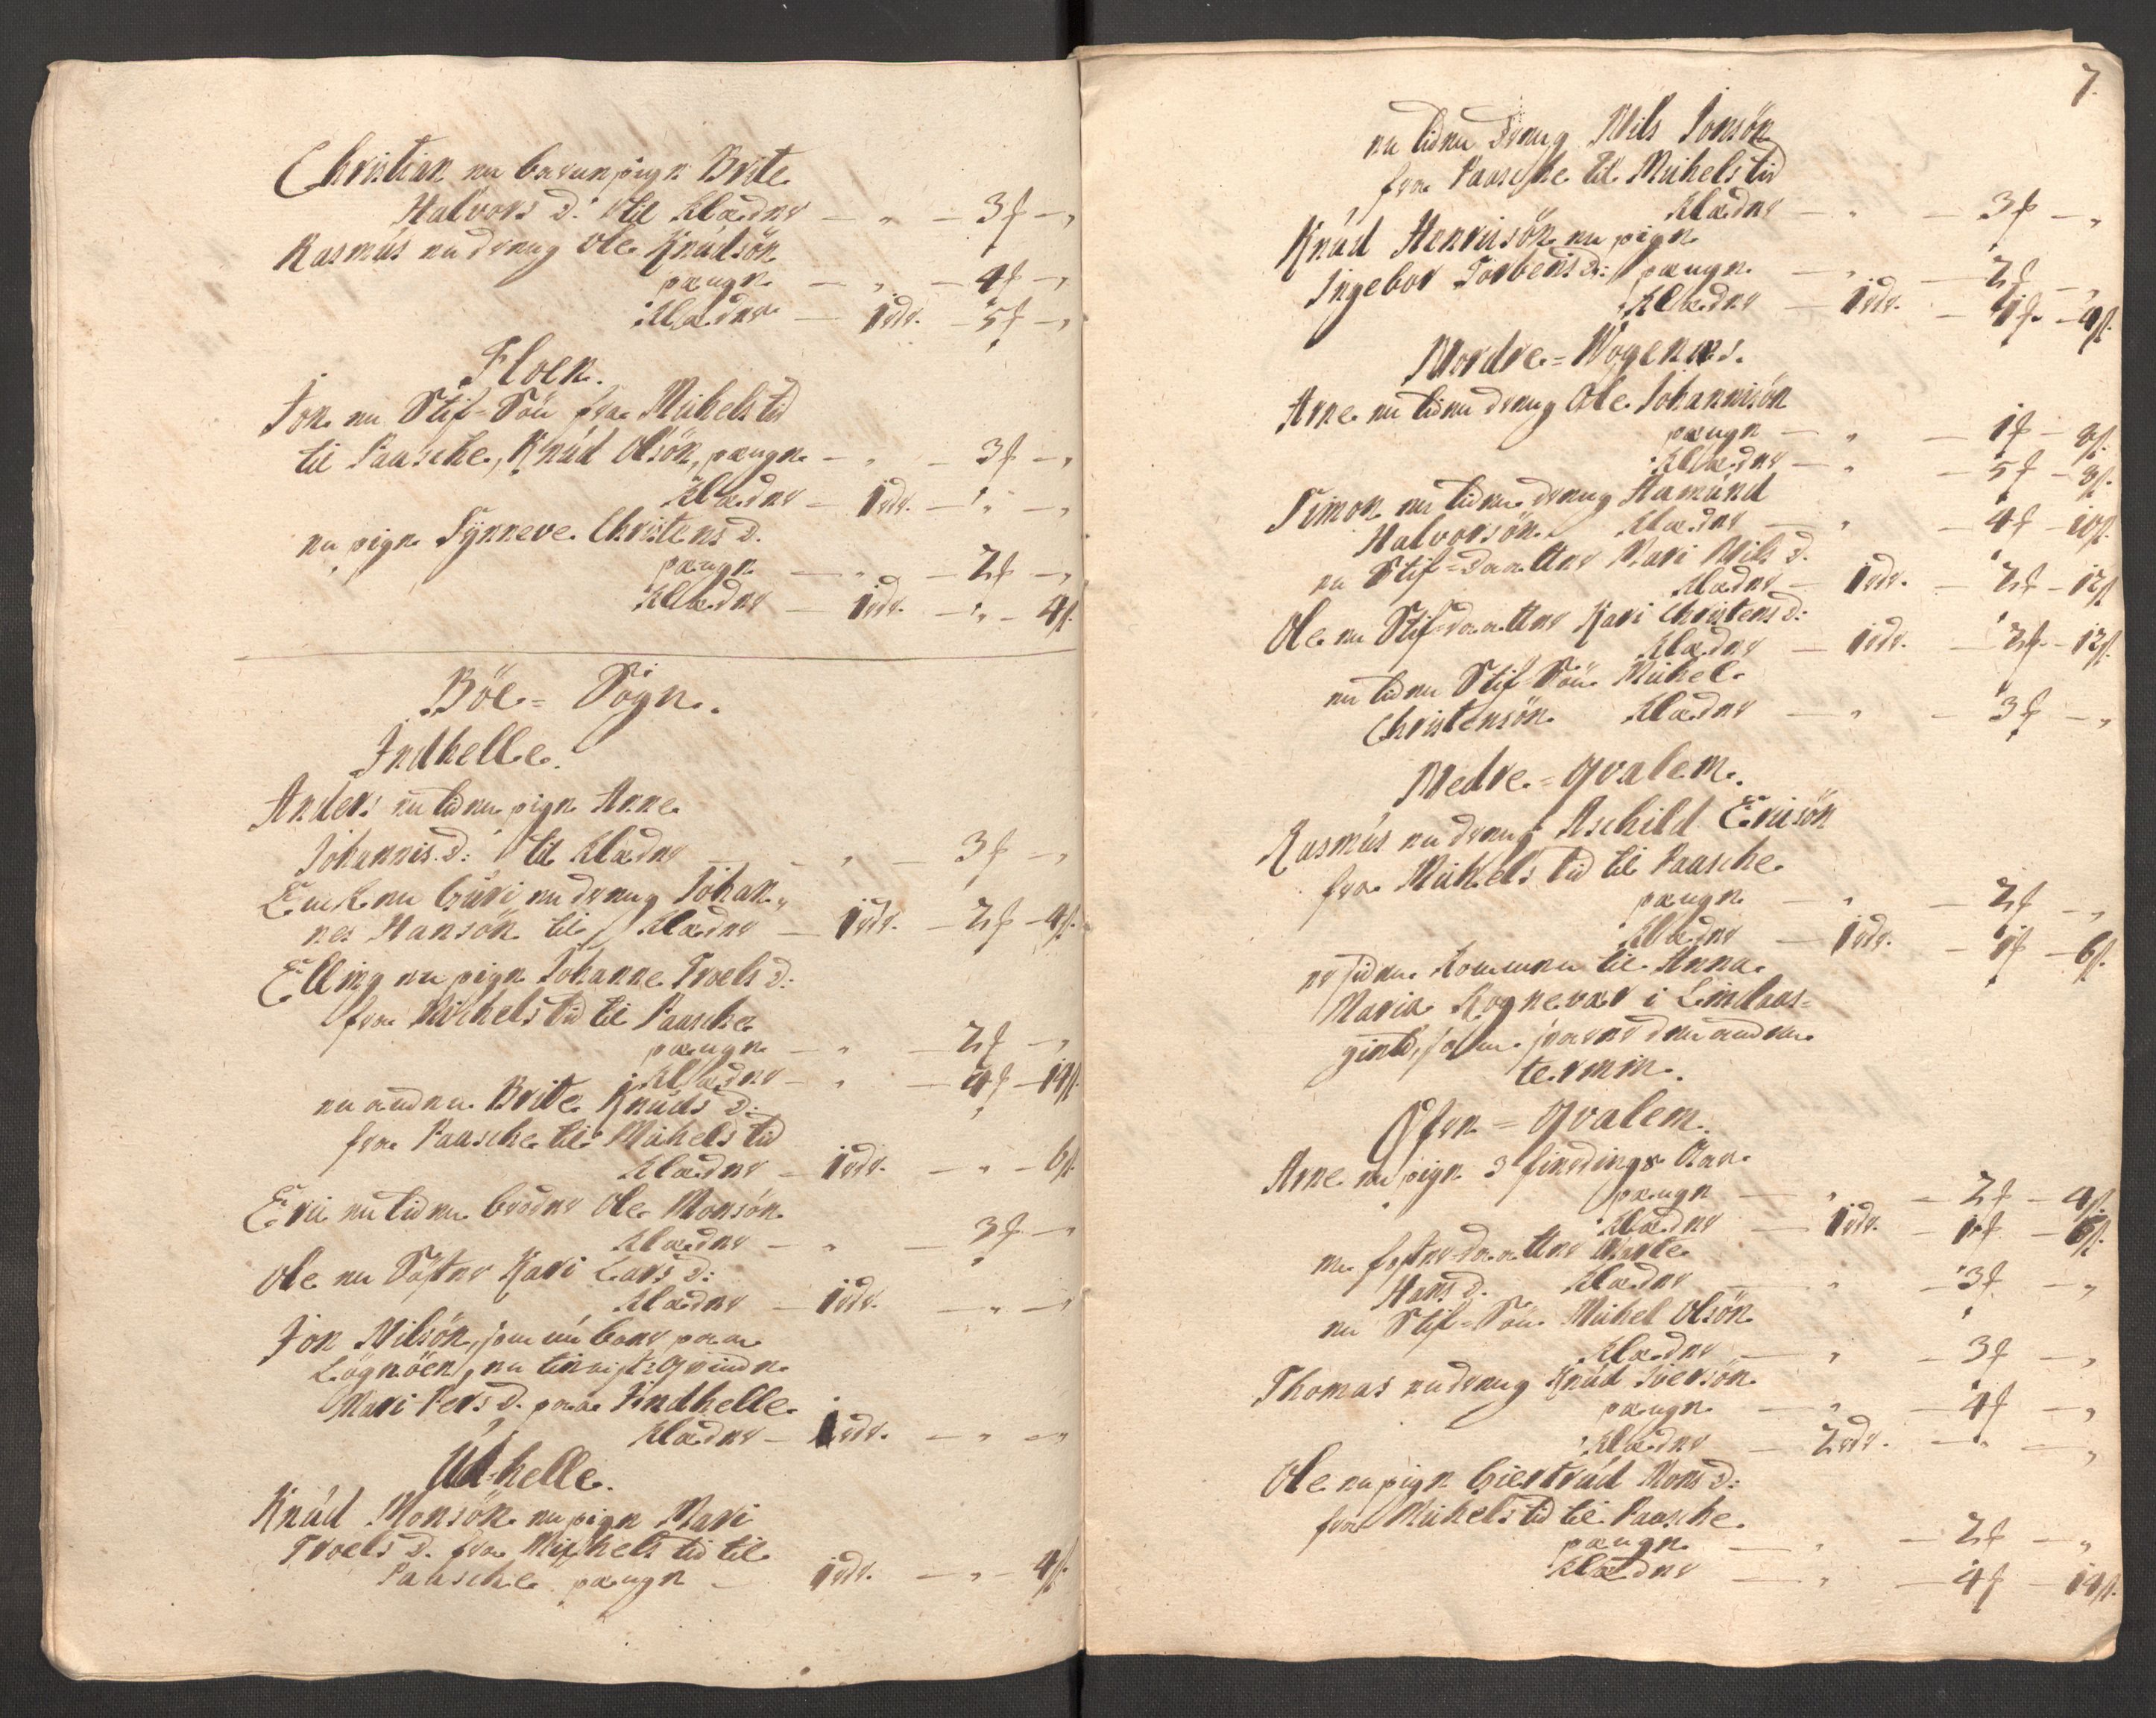 Christian en barnepige Brite
Halvors d: til klæder — „ — 3 f — „
Rasmus en dreng Ole Knudsön
penge — „ — 4 f — „
klæder — 1 rdr. — 5 f — „
Floen.
Jon en Stif-Sön fra Michels tid
til Paasche, Knud Olsön, penge — „ — 3 f — „
klæder — 1 rdr. — „ — „
en pige Synneve Christens d.
penge — „ — 2 f — „
klæder — 1 rdr. — „ — 4 ß.
Böe-Sogn.
Indhelle.
Anders en liden pige Anne
Johannis d: til klæder — „ — 3 f — „
Enken Guri, en dreng Johan-
nes Hansön til klæder — 1 rdr. — 2 f — 4 ß.
Elling en pige Johanne Troels d:
fra Michels tid til Paasche
penge — „ — 2 f — „
klæder — „ — 4 f — 14 ß.
en anden Brite Knuds d:
fra Paasche til Michels tid
klæder — 1 rdr. — „ — 6 ß.
Eric en liden broder Ole Monsön
klæder — „ — 3 f — „
Ole en Söster Kari Lars d:
klæder — 1 rdr. — „ — „
Jon Nilsön, som nu boer paa
Lögnöen, en
Mari Pers d. paa Indhelle
klæder — 1 rdr. — „ — „
Ud-helle.
Knud Monsön en pige Mari
Troels d. fra Michels tid til
Paasche penge — 1 rdr. — „ — 4 ß.
7.
en liden dreng Nils Jonsön
fra Paasche til Michels tid
klæder — „ — 3 f — „
Knud Henricsön en pige
Ingebor Torbens d: penge — „ — 2 f — „
klæder — 1 rdr. — 1 f. — 4 ß.
Nordre-Wogenæs.
Arne en liden dreng Ole Johannisön
penge — „ — 1 f — 8 ß.
klæder — „ — 5 f — 8 ß.
Simon en liden dreng Hamund
Halvorsön. klæder — „ — 4 f — 10 ß.
en Stif-daatter Mari Nils d.
klæder — 1 rdr. — 2 f — 12 ß
Ole en Stif-daatter Kari Christens d:
klæder — 1 rdr. — 2 f — 12 ß.
en liden Stif-Sön Michel
Christensön klæder — „ — 3 f — „
Nedre-Qvalem.
Rasmus en dreng Aschild Ericsön
fra Michels tid til Paasche
penge — „ — 2 f — „
klæder — 1 rdr. — 1 f — 6 ß.
er siden kommen til Anna
Maria Rognevær i Lindaas-
gield, som svarer den anden
termin.
Öfre-Qvalem.
Arne en pige 3 fierdings Aar
penge — „ — 2 f — 4 ß.
klæder — 1 rdr. — 1 f — 6 ß.
en foster-daatter Marte
Hans d. klæder — „ — 3 f — „
en Stif-Sön Michel Olsön
klæder — „ — 3 f — „
Thomas en dreng Knud Iversön
penge — „ — 4 f — „
klæder — 2 rdr. — „ — „
Ole en pige Giertrud Mons d:
fra Michels tid til Paasche
penge — „ — 2 f — „
klæder — „ — 4 f — 14 ß.